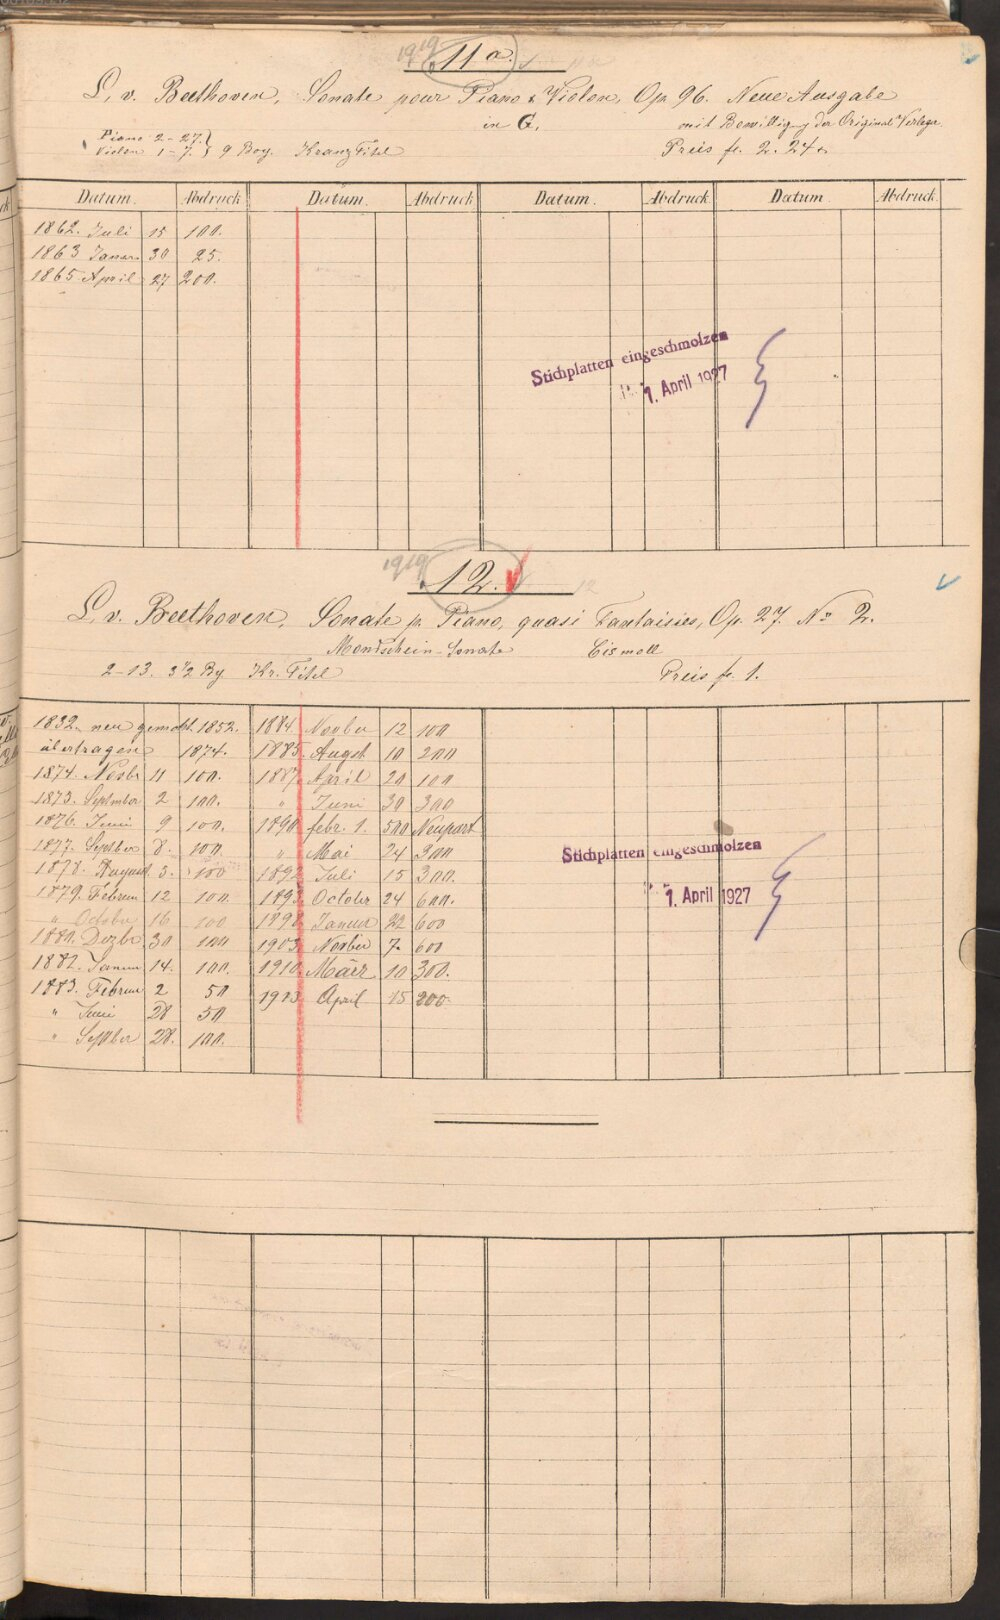 1919 11a.
L. v. Beethoven, Sonate pour Piano & Violon, Op. 96. Neue Ausgabe
in G, mit Bewilligg der Original Verleger
Piano 2-27.
Violon 1-7. } 9 Bog. Kranz Titel Preis fl. 2. 24
Datum. Abdruck Datum. Abdruck Datum. Abdruck Datum Abdruck.
1862. Juli 15 100.
1863 Januar 30 25.
1865 April 27 200.
Stichplatten eingeschmolzen
1. April 1927
1919 12.
L. v. Beethoven, Sonate p. Piano, quasi Fantaisies, Op. 27. No 2.
Mondschein-Sonate Cis moll
2-13. 3½ Bg Kr. Titel Preis fl. 1.
1832. neu gemacht 1852. 1884. Novber 12 100
übertragen 1874. 1885. Augst 10 200
1874. Novbr 11 100. 1887. April 20 100
1875. Septmber 2 100. " Juni 30 300
1876. Juni 9 100. 1890. febr. 1. 500 Neupart
1877. Septber 8. 100 " Mai 24 300
1878. August 5. 100 1892. Juli 15 300.
1879. Februar 12 100. 1893. October 24 600.
" October 16 100 1898. Januar 22 600
1880. Dezbr. 30 100 1903. Novber 7. 600
1882. Januar 14. 100. 1910. März 10 300.
1883. Februar 2 50 1913 April 15 200.
" Juni 28 50
" Septber 28. 100.
Stichplatten eingeschmolzen
1. April 1927